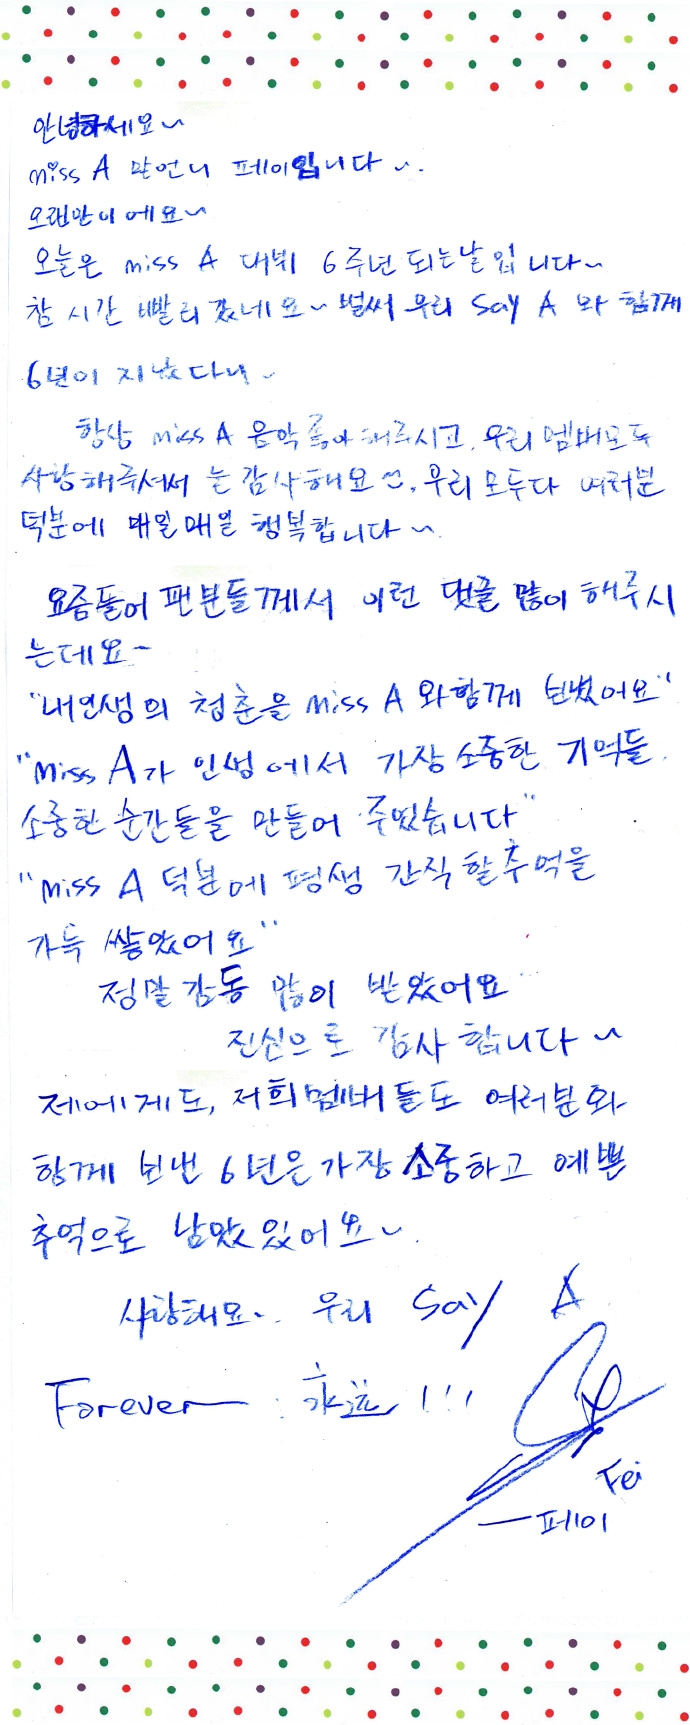 안녕하세요~
miss A 맏언니 페이입니다~.
오랜만이에요~
오늘은 miss A 데뷔 6주년 되는날입니다~
참 시간 빨리 갔네요~ 벌써 우리 Say A 와 함께
6년이 지났다니~
항상 miss A 음악 좋아해주시고, 우리 멤버모두
사랑해주셔서 늘 감사해요. 우리 모두다 여러분
덕분에 매일매일 행복합니다~.
요즘들어 팬분들께서 이런 댓글 많이 해주시
는데요~
"내인생의 청춘을 miss A 와함께 보냈어요"
"Miss A가 인생에서 가장 소중한 기억들,
소중한 순간들을 만들어 주었습니다"
"Miss A 덕분에 평생 간직할추억을
가득 쌓았어요"
정말 감동 많이 받았어요
진심으로 감사합니다~
저에게도, 저희멤버들도 여러분과
함께 보낸 6년은 가장 소중하고 예쁜
추억으로 남았있어요~.
사랑해요~. 우리 Say A
Forever 永远!!!
Fei
—페이